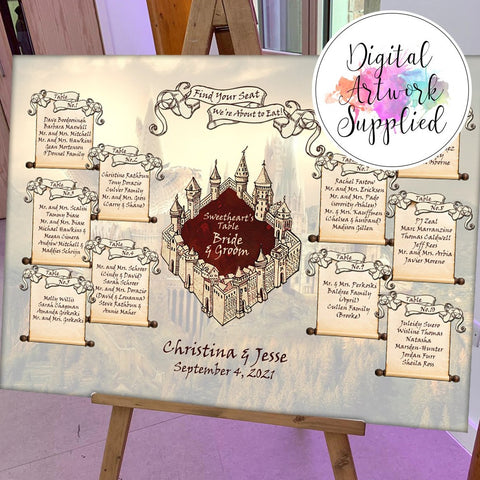 Digital
Artwork
Supplied
Find Your Seat
We're About to Eat!
Table
No.1
Dave Boodeningh
Barbara Maxwell
Mitch Morrell
Mr. and Mrs. Hawkins
Sean Mortensen
O'Donnel Family
Table
No.2
Christine Rathbun
Tony Dorazio
Culver Family
Mr. and Mrs. Goss
(Carry & Shane)
Mr. and Mrs. Scalise
Tammy Biase
Mr. and Mrs. Biase
Michael Hawkins &
Megan Cimera
Andrew Mitchell &
Maddie Schrijn
Table
No.4
Mr. and Mrs. Schroer
(Cindy & David)
Sarah Schroer
Mr. and Mrs. Dorazio
(David & Louanna)
Steve Rathbun &
Annie Maher
Table
No.5
Molly Willis
Sarah Chapman
Amanda Grokoski
Mr. and Mrs. Grokoski
Sweetheart's
Table
Bride
& Groom
No.7
Rachel Fastow
Mr. and Mrs. Ericksen
Mr. and Mrs. Pade
(Dorothy Ashlen)
Mr. and Mrs. Kauffman
(Chelsea & husband)
Madison Gillen
Table
No.8
PJ Zeal
Marc Marranzino
Thomas Caldwell
Jeff Rees
Mr. and Mrs. Arbia
Javier Moreno
Table
Mr. & Mrs. Perkoski
Baldree Family
(April)
Cullen Family
(Brooke)
Table
No.10
Juleidy Suero
Wisline Thomas
Natasha
Marsden-Hunter
Jordan Furr
Sheila Ross
Christina & Jesse
September 4, 2021